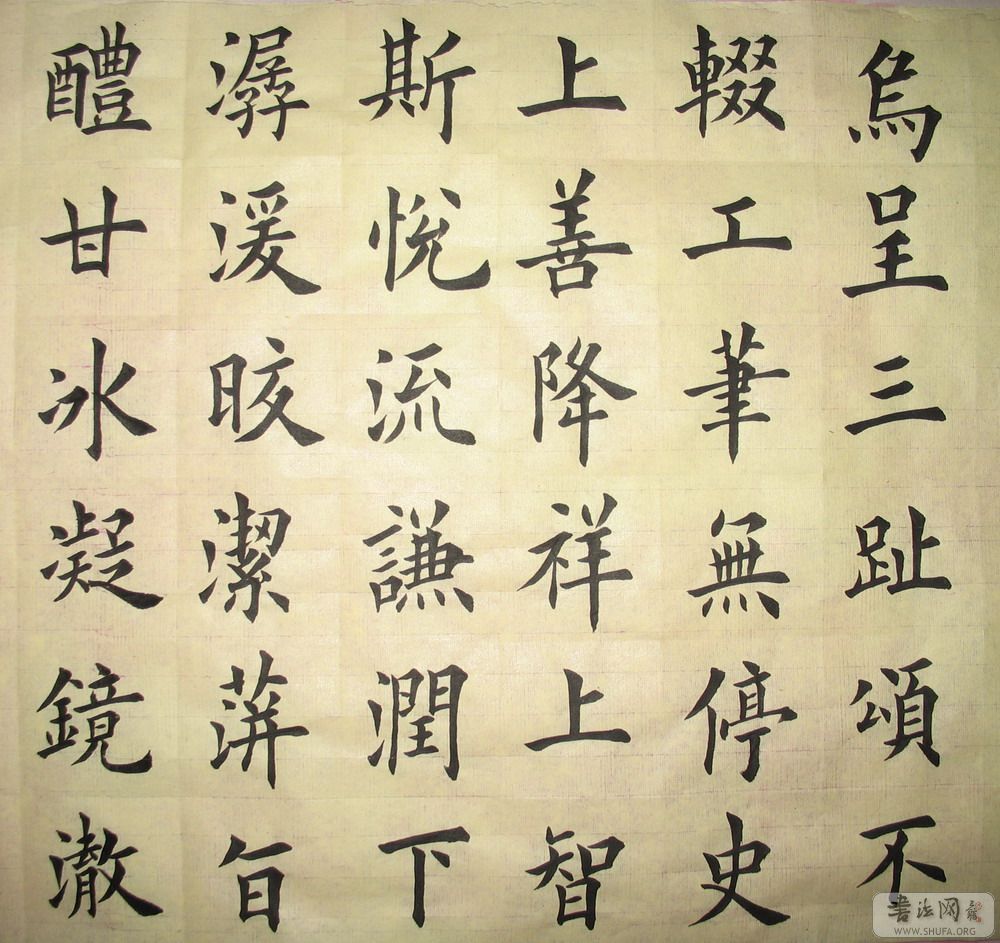 烏呈三趾頌不
輟工筆無停史
上善降祥上智
斯悅流謙潤下
潺湲皎潔蓱旨
醴甘冰凝鏡澈
書法网
WWW.SHUFA.ORG